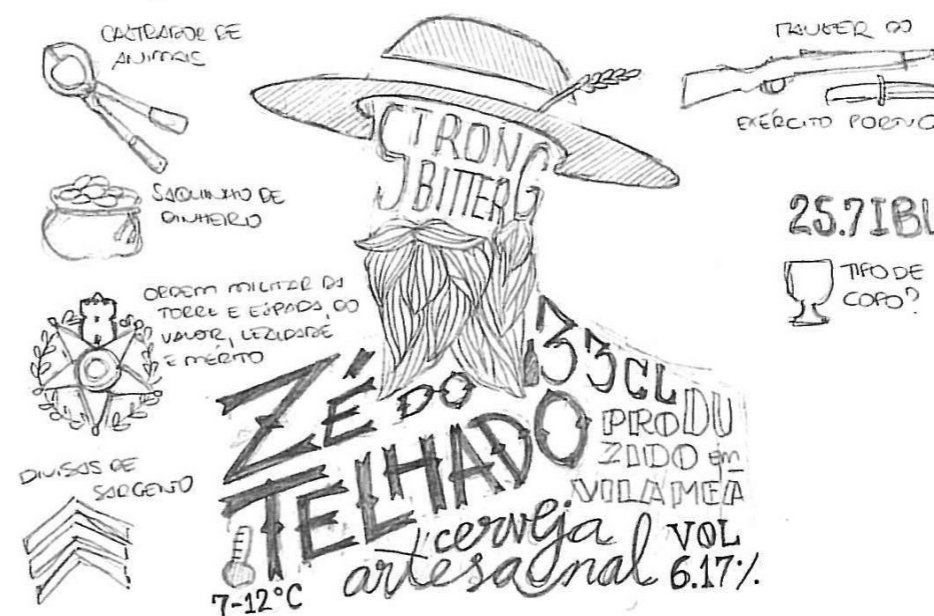 CASTRADOR DE
ANIMAIS
SAQUINHO DE
DINHEIRO
ORDEM MILITAR DA
TORRE E ESPADA, DO
VALOR, LEALDADE
E MÉRITO
DIVISAS DE
SARGENTO
STRONG
BITTER
ZÉ DO
TELHADO
33CL
PRODU
ZIDO em
VILA MEÃ
cerveja
artesanal
VOL
6.17%
7-12°C
MAUSER DO
EXÉRCITO
25.7IBU
TIPO DE
COPO?